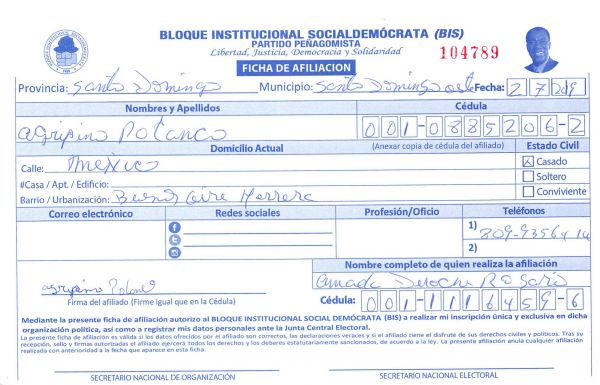 BLOQUE INSTITUCIONAL SOCIALDEMÓCRATA (BIS)
PARTIDO PEÑAGOMISTA
Libertad, Justicia, Democracia y Solidaridad
104789
FICHA DE AFILIACION
Provincia: Santo Domingo Municipio: Santo Domingo oeste Fecha: 2 7 2019
Nombres y Apellidos Cédula
agripino Polanco 001-0885206-2
Domicilio Actual (Anexar copia de cédula del afiliado) Estado Civil
Calle: mexico Casado
#Casa / Apt. / Edificio: Soltero
Barrio / Urbanización: Buenos Aire Herrera Conviviente
Correo electrónico Redes sociales Profesión/Oficio Teléfonos
1) 809-9356414
2)
Nombre completo de quien realiza la afiliación
agripino Polanco Rosario
Firma del afiliado (Firme igual que en la Cédula) Cédula: 001-1116459-6
Mediante la presente ficha de afiliación autorizo al BLOQUE INSTITUCIONAL SOCIAL DEMÓCRATA (BIS) a realizar mi inscripción única y exclusiva en dicha
organización política, así como a registrar mis datos personales ante la Junta Central Electoral.
La presente ficha de afiliación es válida si los datos ofrecidos por el afiliado son correctos, las declaraciones veraces y si el afiliado tiene el disfrute de sus derechos civiles y políticos. Tras su
recepción, sello y firmas autorizadas el afiliado ejercerá todos los derechos y los deberes estatutariamente sancionados, de acuerdo a la ley. La presente afiliación anula cualquier afiliación
realizada con anterioridad a la fecha que aparece en esta ficha.
SECRETARIO NACIONAL DE ORGANIZACIÓN SECRETARIO NACIONAL ELECTORAL